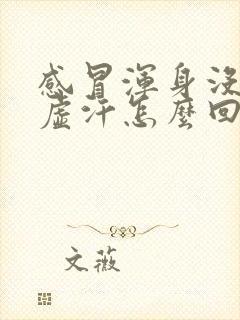 感冒渾身沒
虛汗怎麼回
文薇